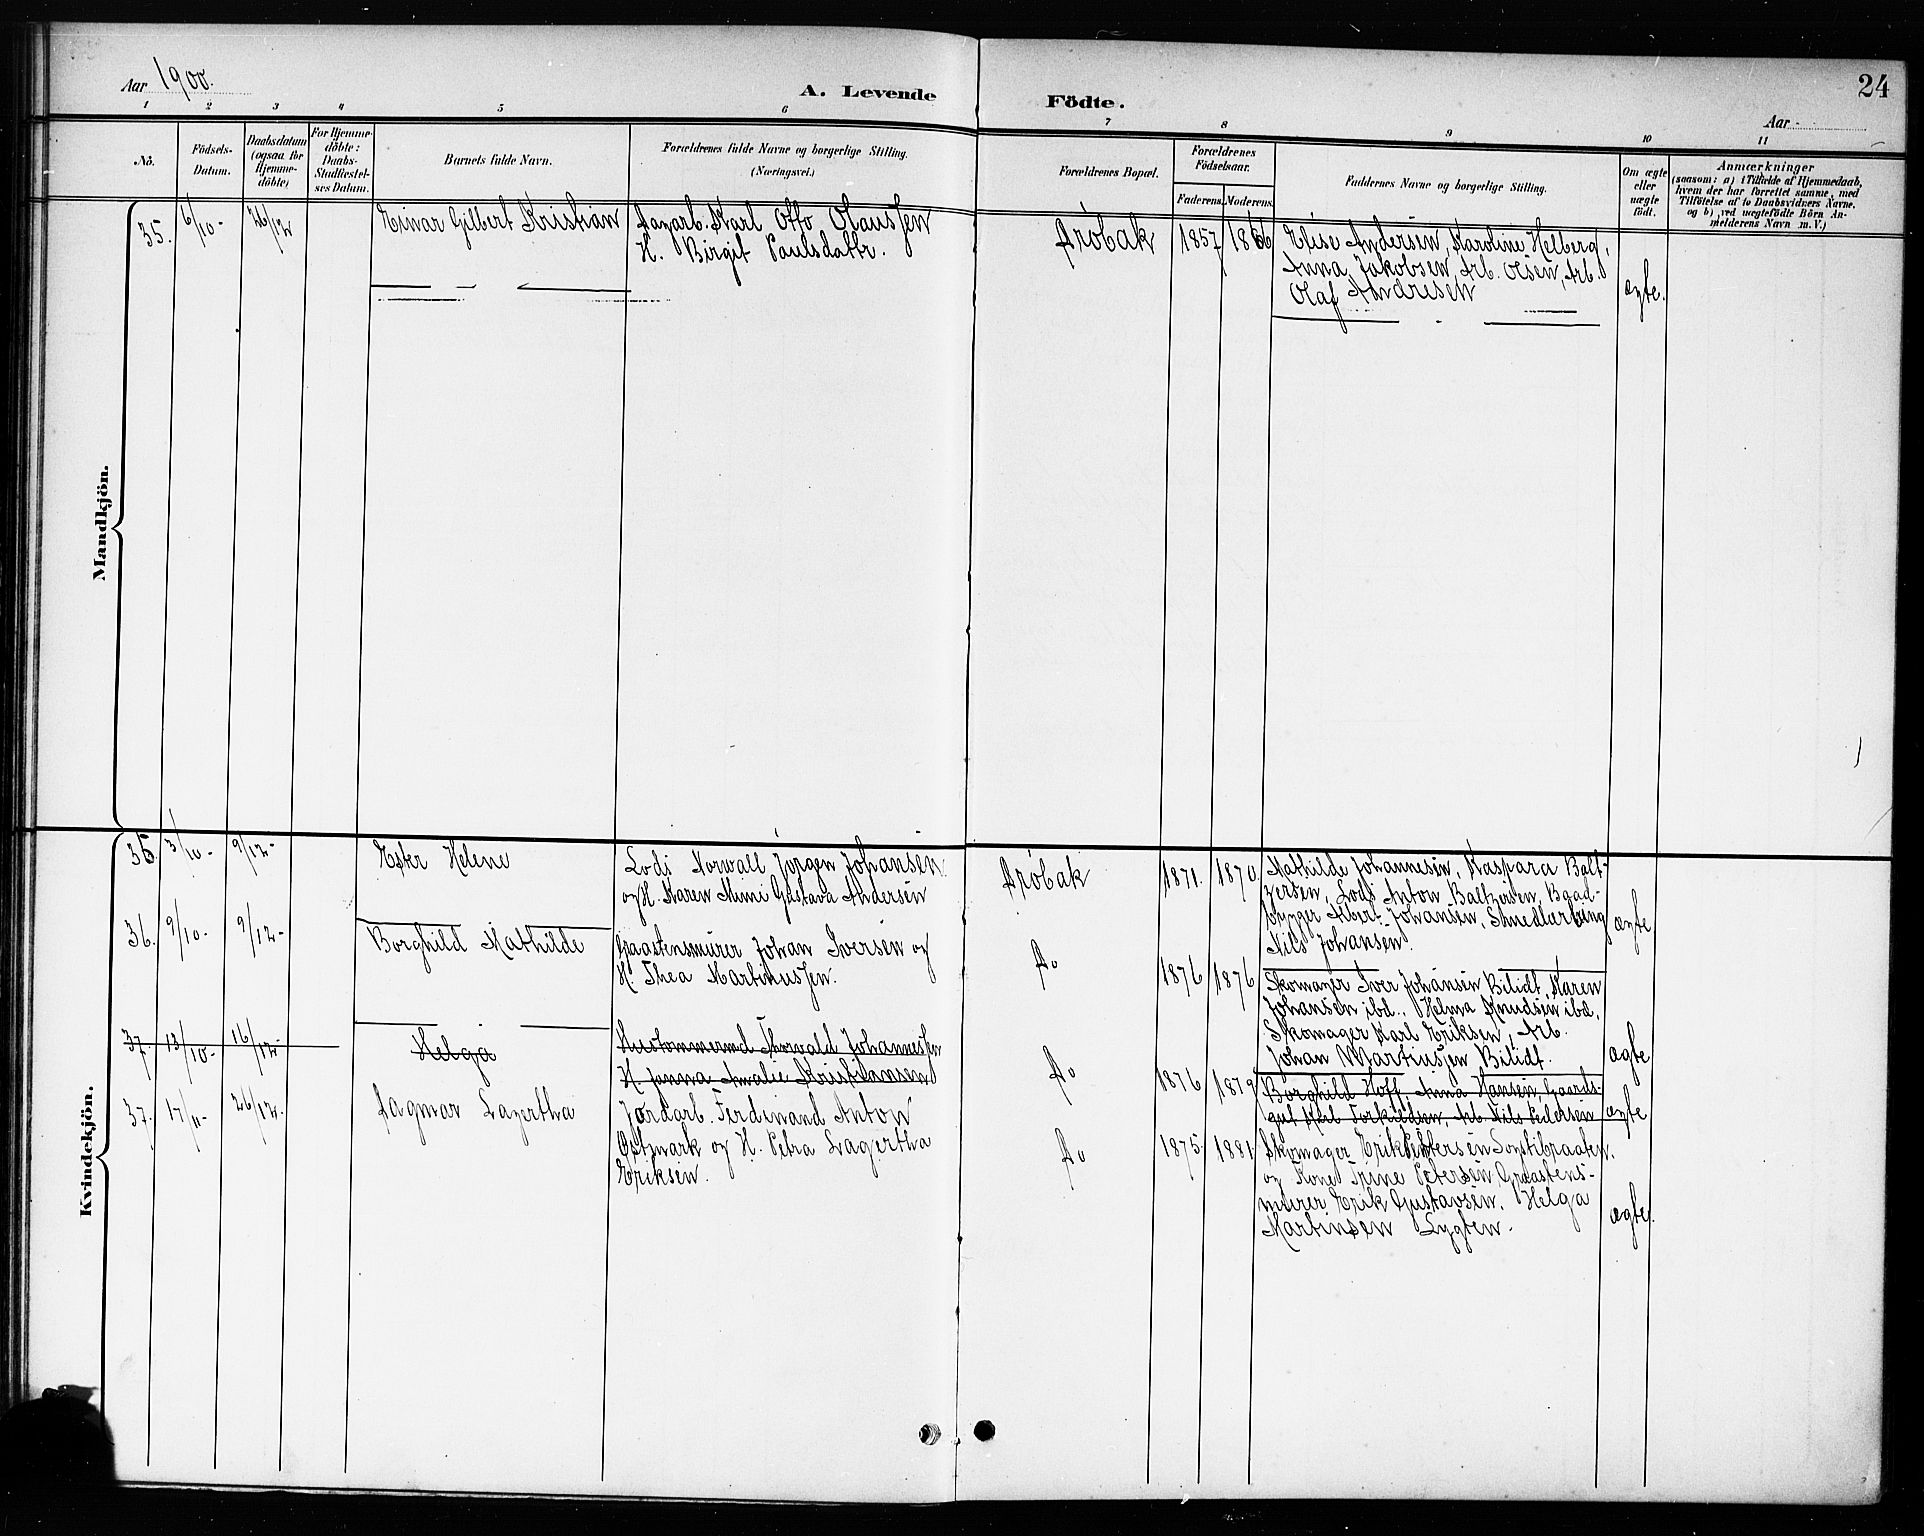 Aar 1900.
A. Levende Födte.
24
Aar
1 2 3 4 5 6 7 8 9 10 11
No.
Födsels-
Datum.
Daabsdatum
(ogsaa for
Hjemme-
döbte)
For Hjemme-
döbte:
Daabs-
Stadfæstel-
ses Datum.
Barnets fulde Navn.
Forældrenes fulde Navne og borgerlige Stilling.
(Næringsvei.)
Forældrenes Bopæl.
Forældrenes
Födselsaar.
Faderens. Moderens.
Faddernes Navne og borgerlige Stilling.
Om ægte
eller
uægte
födt.
Anmærkninger
(saasom: a) i Tilfælde af Hjemmedaab,
hvem der har forrettet samme, med
Tilföielse af to Daabsvidners Navne.
og b) ved uægtefödte Börn An-
melderens Navn m. V.)
Mandkjön.
35. 6/10- 26/12 Einar Gilbert Kristian
Dagarb. Karl Otto Olaussen
H. Birgit Paulsdattr.
Dröbak 1857 1866
Elise Andersen, Karoline Helberg,
Anna Jakobsen, Arb. Olsen, Arb.
Olaf Andresen
ægte.
Kvindekjön.
35. 3/10- 9/12- Ester Helene
Lods Norwall Jørgen Johansen
og H. Karen Mimi Gustava Andersen
Dröbak 1871. 1870.
Mathilde Johannesen, Kaspara Balt-
zersen, Lods Anton Baltzersen, Baad-
bygger Albert Johansen, Smedlærling
Nils Johansen.
ægte
36. 9/10- 9/12- Borghild Mathilde
Graastensmurer Johan Iversen og
H. Thea Martinussen.
Do 1876 1876
Skomager Iver Johansen Bilidt, Karen
Johansen ibd., Helma Knudsen ibd,
Skomager Karl Eriksen, Arb.
Johan Martiussen Bilidt.
ægte
37. 13/10- 16/12- Helga
Hustømmermd Thorvald Johannessen
H. Janna Amalie Kristiansen
Do 1876 1879
Borghild Hoff, Anna Hansen, Gaards-
gut Karl Torkildsen, Arb. Nils Pedersen
ægte
37. 17/11- 26/12. Dagmar Lagertha
Jordarb. Ferdinand Anton
Østmark og H. Petra Lagertha
Eriksen.
Do 1875 1881
Skomager Erik Pettersen
og Kone Trine Petersen, Graastens-
murer Erik Gustavsen, Helga
Martinsen Lygten.
ægte.